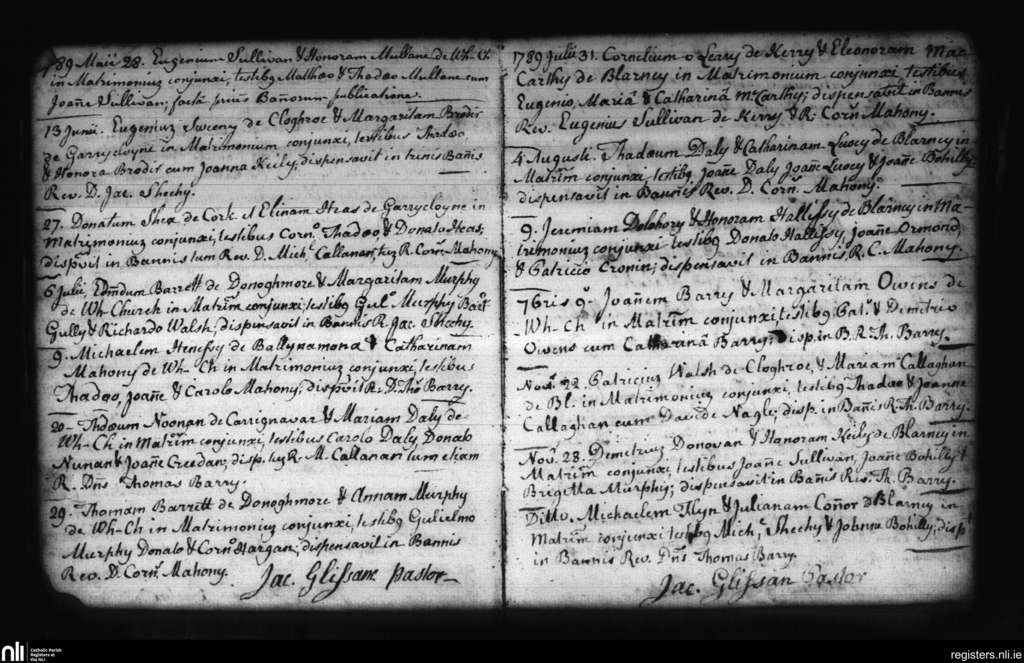 89 Maii 28. Eugenium Sullivan & Honoram Mullane de Wh-Ch
in Matrimoniuz conjunxi, testibq Mathæo & Thadæo Mullane cum
Joañe Sullivan; factâ priùs Bañorum publicatione.
13 Junii. Eugeniuz Sweeny de Cloghroe & Margaritam Brodir
de Garrycloyne in Matrimonium conjunxi, testibus Thadæo
& Honora Brodir cum Joanna Keily; dispensavit in trinis Bañis
Rev. D. Jac. Sheehy.
27. Donatum Shea de Cork et Elinam de Garrycloyne in
Matrimoniuz conjunxi, testibus Corno. Thadæo & Donato
in Bannis tum Rev. D. Mich. Callanan, R. Corn. Mahony
6 Julii, Edmdum Barrett de Donoghmore & Margaritam Murphy
de Wh-Church in Matrim̄ conjunxi, testibq Gul. Murphy Bart
Gully & Richardo Walsh, dispensavit in Bannis R. Jac. Sheehy.
9. Michaelem Henessy de Ballynamona & Catharinam
Mahony de Wh-Ch in Matrimoniuz conjunxi, testibus
Thadæo, Joañe & Carolo Mahony, dispvit R. D. Tho. Barry.
20- Thdoum Noonan de Carrignavar & Mariam Daly de
Wh-Ch in Matrim̄ conjunxi, testibus Carolo Daly, Donato
Nunan & Joañe Creedan; disp. R. M. Callanan tum etiam
R. Dns Thomas Barry.
29. Thomam Barrett de Donoghmore & Annam Murphy
de Wh-Ch in Matrimoniuz conjunxi, testibq Gulielmo
Murphy Donato & Corno Hargan; dispensavit in Bannis
Rev. D. Corn. Mahony.
Jac. Glissan Pastor
1789 Julii 31. Cornelium o Leary de Kerry & Eleonoram Mac
Carthy de Blarney in Matrimonium conjunxi testibus
Eugenio, Mariâ & Catharinâ McCarthy; dispensavit in Bannis
Rev. Eugenius Sullivan de Kerry & R. Corn. Mahony.
4 Augusti. Thadæum Daly & Catharinam Lucey de Blarney in
Matrim̄ conjunxi, testibq Joañe Daly Joañe Lucey & Joañe Bohilly
dispensavit in Bannis Rev. D. Corn. Mahony.
9. Jeremiam Dolohory & Honoram Hallissy de Blarney in Ma-
trimoniuz conjunxi testibq Donato Hallissy, Joañe Ormond,
& Patricio Cronin; dispensavit in Bannis R. C. Mahony.
7bris 9. Joañem Barry & Margaritam Owens de
Wh-Ch in Matrim̄ conjunxi, testibq Pat. & Demetrio
Owens cum Catharinâ Barry; disp. in B. R. Th. Barry.
Nov. 22. Patriciuz Walsh de Cloghroe, & Mariam Callaghan
de Bl. in Matrimoniuz conjunxi, testibq Thadæo & Joanna
Callaghan cum Davide Nagle; disp. in Bañis R. Th. Barry.
Nov. 28. Demetriuz Donovan & Honoram Keily de Blarney in
Matrim̄ conjunxi, testibus Joañe Sullivan, Joañe Bohilly &
Brigitta Murphy; dispensavit in Bañis Rev. Th. Barry.
Ditto. Michaelem Flyn & Julianam Coñor de Blarney in
Matrim̄ conjunxi testibq Mich. Sheehy & Johnna Bohilly; disp
in Bannis Rev. Dns Thomas Barry.
Jac. Glissan Pastor
nli
Catholic Parish
Registers at
the NLI
registers.nli.ie